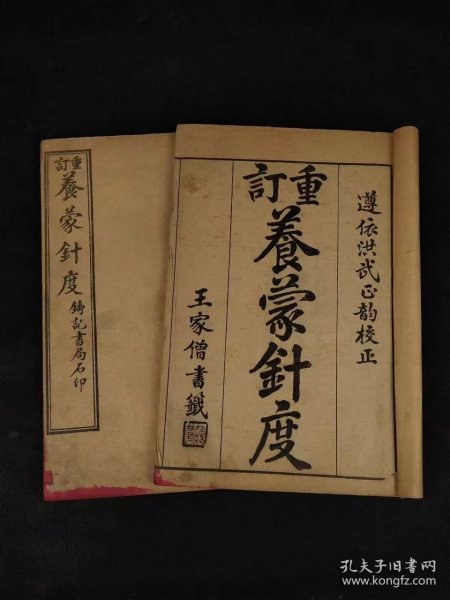 重訂
養蒙針度
鑄記書局石印
遵依洪武正韵校正
重訂
養蒙針度
王家僧書籤
孔夫子旧书网
www.kongfz.com